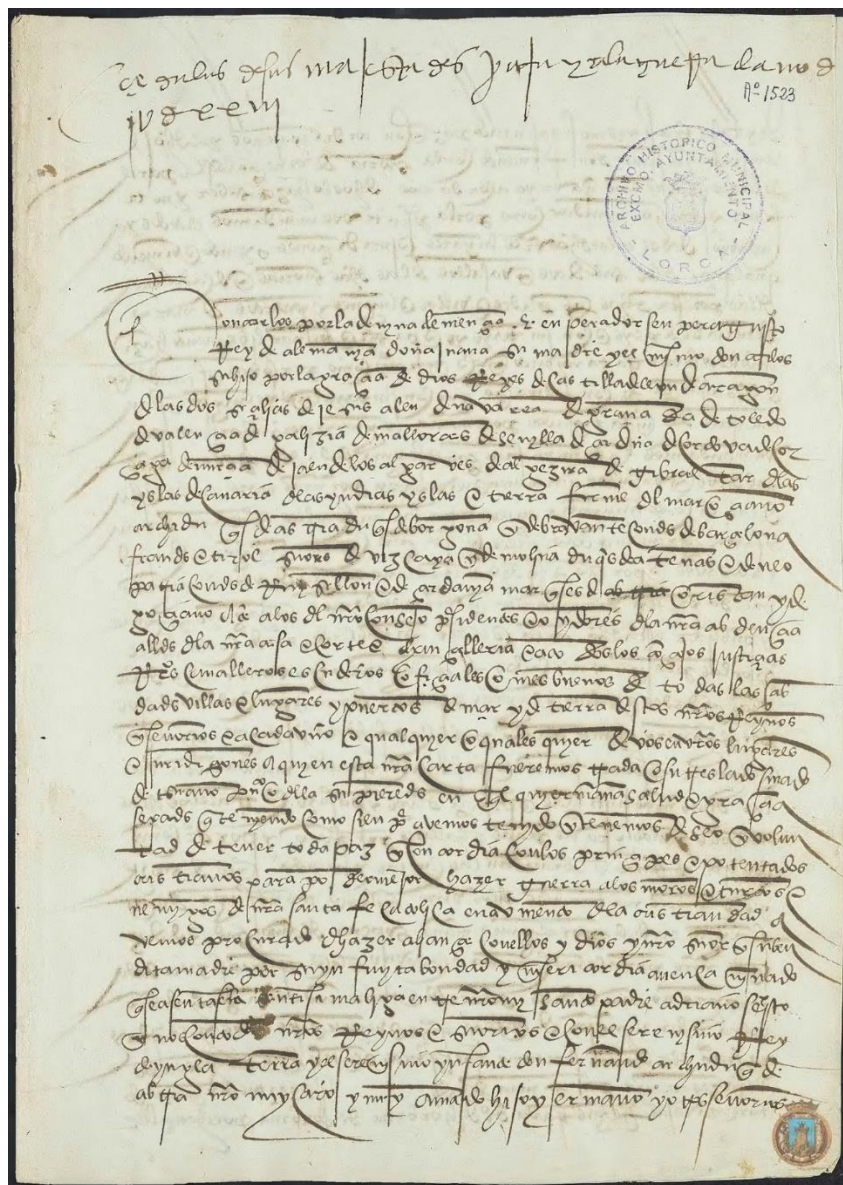 çedulas de sus magestades para la guerra del año de
IUDXXIII
Aº 1523
ARCHIVO HISTORICO MUNICIPAL
EXCMO. AYUNTAMIENTO
- LORCA -
Don carlos por la devyna clemençia e enperador senper agusto
Rey de alemanya doña juana su madre y el mismo don carlos
su hijo por la graçia de dios Reyes de castilla de leon de aragon
de las dos seçilias de jerusalen de navarra de granada de toledo
de valençia de galizia de mallorcas de sevylla de çerdeña de cordova de cor
çega de murçia de jaen de los algarves de algezira de gibraltar de las
yslas de canaria de las yndias yslas e tierra firme del mar oçeano
archiduques de avstria duques de borgoña e de bravante condes de barçelona
flandes e tirol señores de vizcaya e de molina duques de atenas e de neo
patria condes de Ruysellon e de çerdanya marqueses de oristan y de
goçiano a los del nro consejo presidentes e oydores de la nra abdençia
alldes de la nra casa e corte e chançilleria e a todos los conçejos justiçias
Regidores cavalleros escuderos ofiçiales e omes buenos de todas las çib
dades villas e lugares y puertos de mar y de tierra destos nros Reynos
e señorios e a cada uno e qualquyer e quales quyer de vos en vros lugares
e juridiçiones a quyen esta nra carta fuere mostrada o su treslado sinado
de escrivano puco della supieredes en qual quyer manera salud e graçia
sepades que temyendo como sienpre avemos tenydo e tenemos deseo e volun
tad de tener toda paz e concordia con los prinçipes e potentados
cristianos para poder mejor hazer guerra a los moros e turcos e
nemygos de nra santa fe catolica en avmento de la cristiandad a
vemos procurado de hazer aliança con ellos y dios nro señor e su ben
dita madre por su ynfinyta bondad y misericordia an encamynado
que se a sentado santisima liga entre nro muy santo padre adriano sesto
e nos con todos nros Reynos e señorios e con el serenysimo Rey
de ynglaterra y el serenysimo ynfante don fernando archiduque de
abstria nro muy caro y muy amado hijo y ermano y otros señores